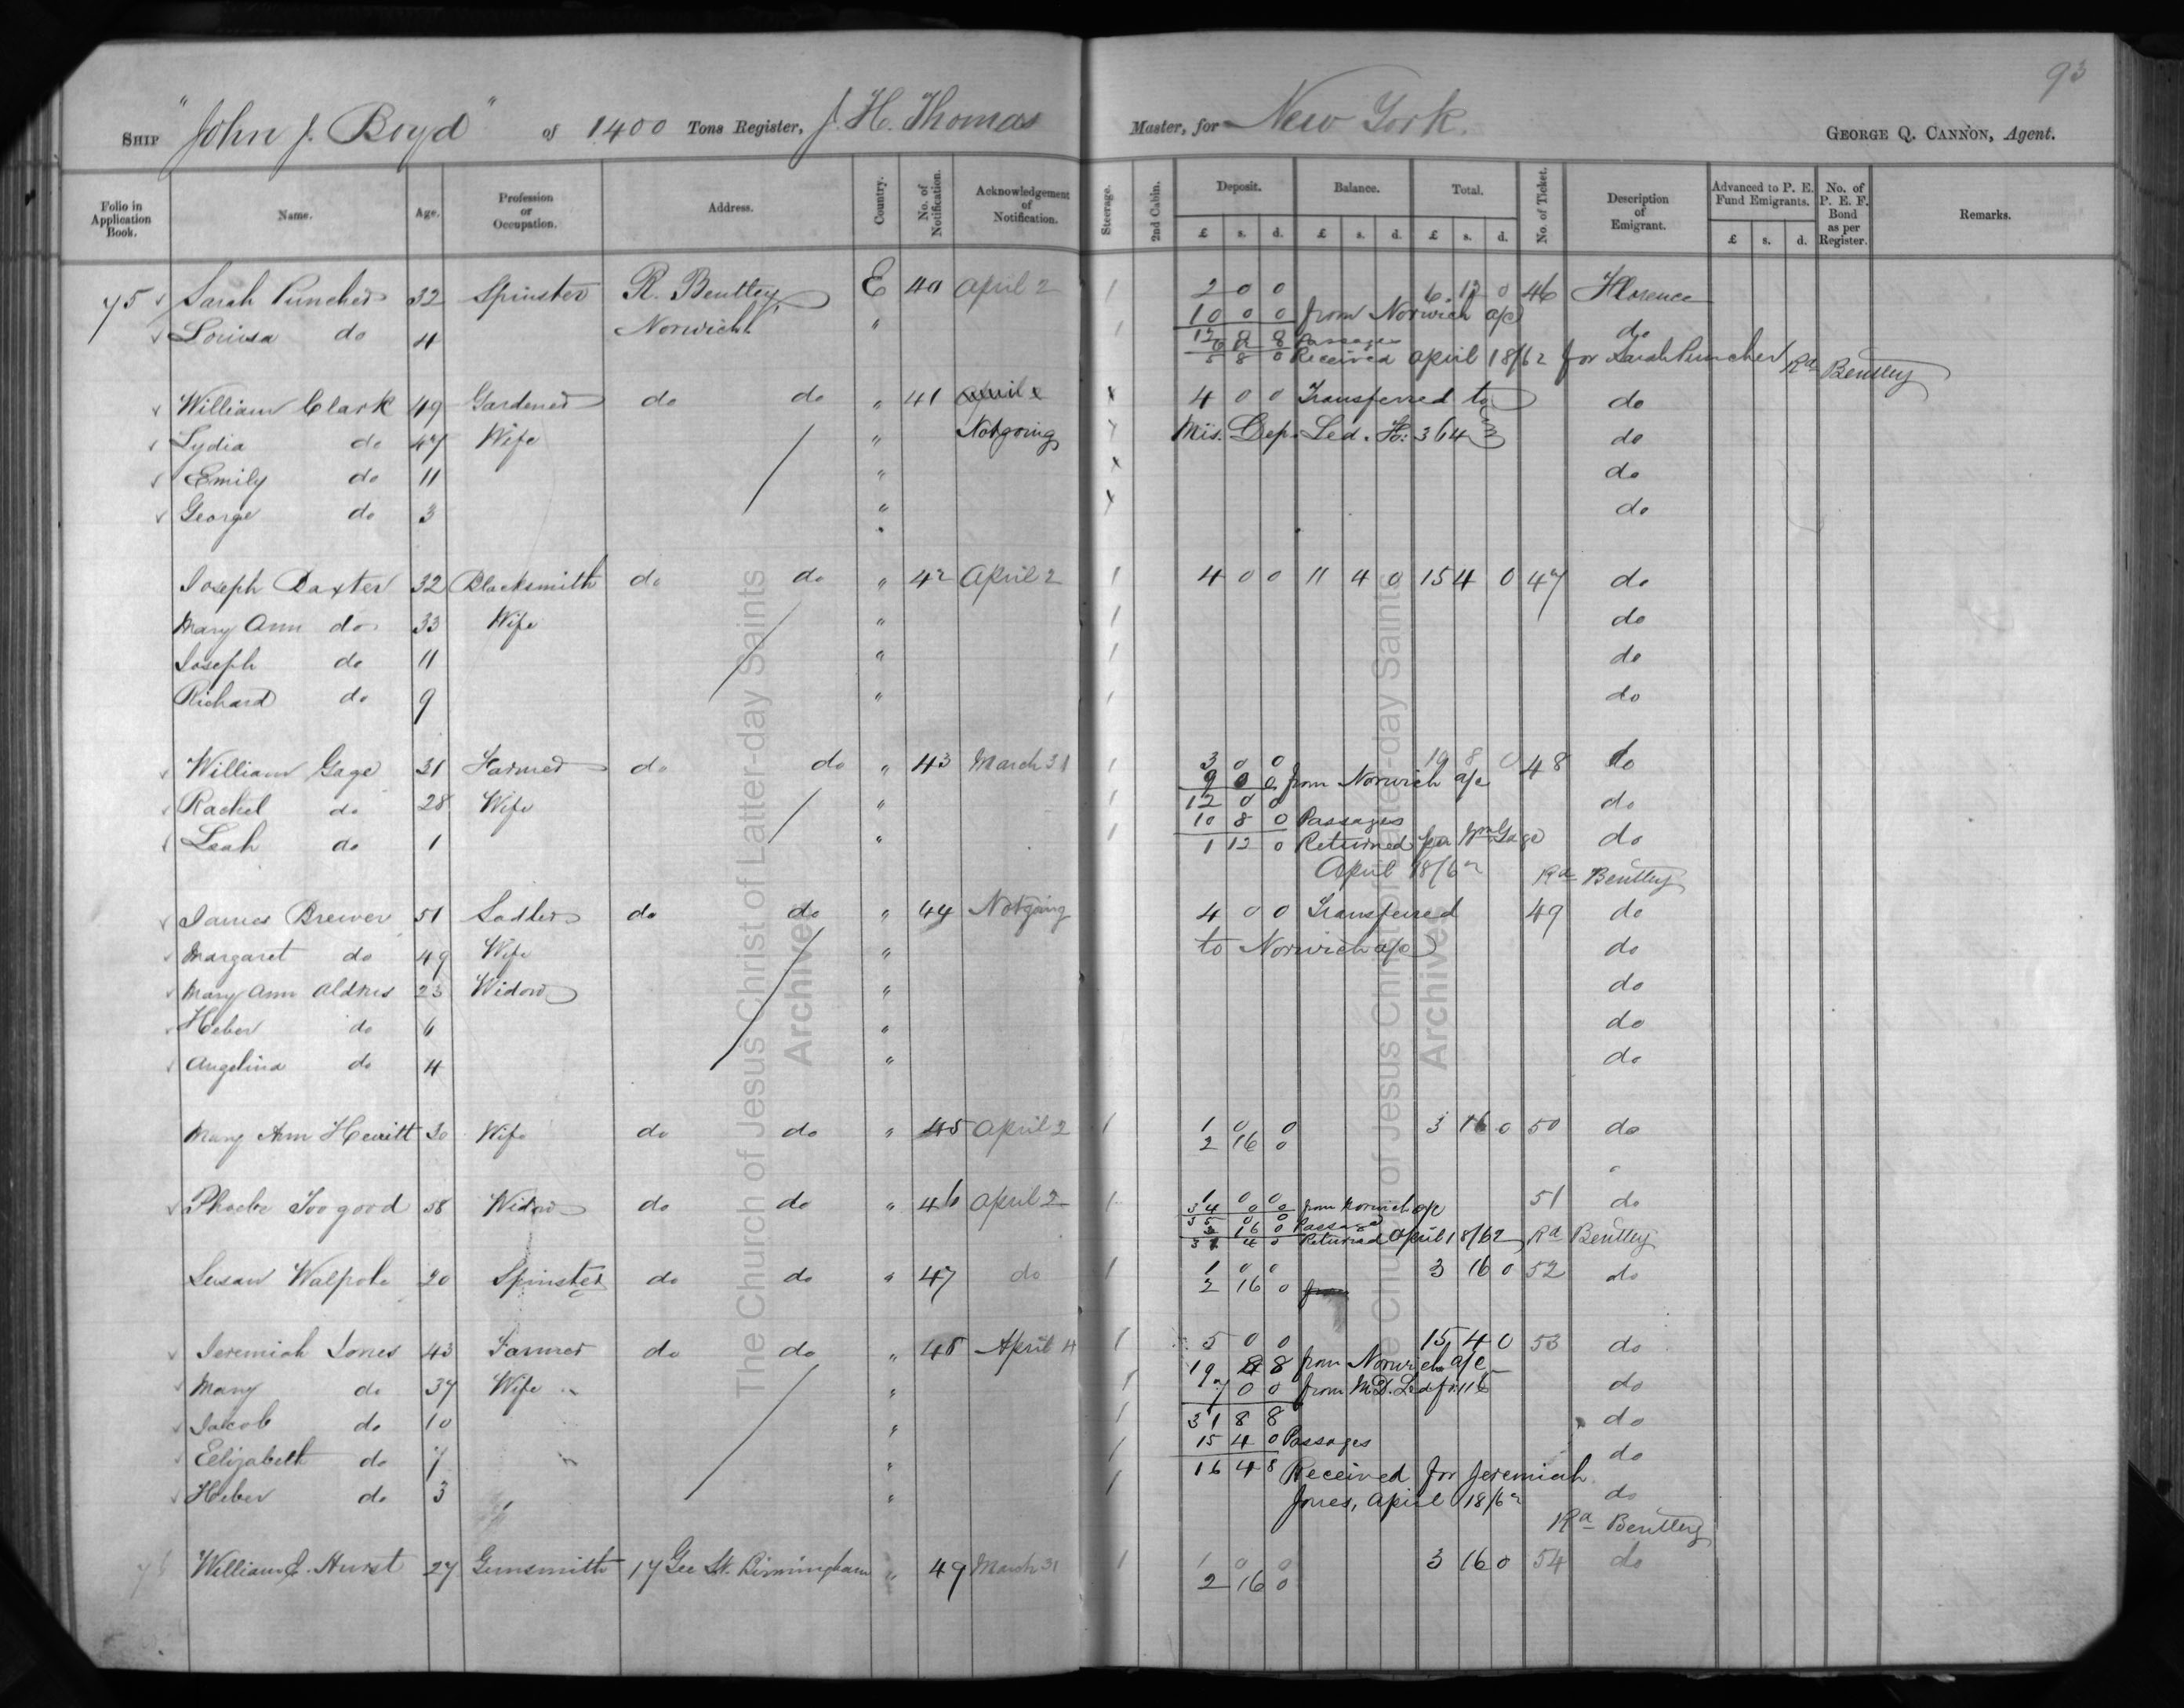 93
SHIP "John J. Boyd" of 1400 Tons Register, J. H. Thomas Master, for New York. GEORGE Q. CANNON, Agent.
Folio in Application Book. Name. Age. Profession or Occupation. Address. Country. No. of Notification. Acknowledgement of Notification. Steerage. 2nd Cabin. Deposit. £ s. d. Balance. £ s. d. Total. £ s. d. No. of Ticket. Description of Emigrant. Advanced to P. E. Fund Emigrants. £ s. d. No. of P. E. F. Bond as per Register. Remarks.
75 Sarah Puncher 32 Spinster R. Bentley E 40 April 2 1 2 0 0 6 12 0 46 Florence
10 0 0 from Norwich a/c
Louisa do 4 Norwich " 1 12 8 8 Passages do
5 8 0 Received April 18/62 for Sarah Puncher Rd Bentley
William Clark 49 Gardener do do " 41 April 2 x 4 0 0 Transferred to do
Lydia do 47 Wife " Not going x Mis. Dep. Led. H: 364 do
Emily do 11 " x do
George do 3 " x do
Joseph Baxter 32 Blacksmith do do " 42 April 2 1 4 0 0 11 4 0 15 4 0 47 do
Mary Ann do 33 Wife " 1 do
Joseph do 11 " 1 do
Richard do 9 " 1 do
William Gage 31 Farmer do do " 43 March 31 1 3 0 0 19 8 0 48 do
9 0 0 from Norwich a/c
Rachel do 28 Wife " 1 12 0 0 do
10 8 0 Passages
Leah do 1 " 1 1 12 0 Returned pr Wm Gage do
April 18/62 Rd Bentley
James Brewer 51 Sadler do do " 44 Not going 4 0 0 Transferred 49 do
Margaret do 49 Wife " to Norwich a/c do
Mary Ann Aldres 25 Widow " do
Heber do 6 " do
Angelina do 4 " do
Mary Ann Hewitt 30 Wife do do " 45 April 2 1 1 0 0 3 16 0 50 do
2 16 0
Phoebe Toogood 58 Widow do do " 46 April 2 1 1 0 0 51 do
34 0 0 from Norwich a/c
35 0 0
3 16 0 Passage
31 4 0 Returned April 18/62 Rd Bentley
Susan Walpole 20 Spinster do do " 47 do 1 1 0 0 3 16 0 52 do
2 16 0 from
Jeremiah Jones 43 Farmer do do " 48 April 4 1 5 0 0 15 4 0 53 do
19 8 8 from Norwich a/c
Mary do 37 Wife " 1 7 0 0 from M.D. Led fo 116 do
Jacob do 10 " 1 31 8 8 do
15 4 0 Passages
Elizabeth do 7 " 1 16 4 8 Received for Jeremiah do
Heber do 3 " 1 Jones, April 18/62 do
Rd Bentley
76 William E. Hurst 27 Gunsmith 17 Gee St. Birmingham " 49 March 31 1 1 0 0 3 16 0 54 do
2 16 0
The Church of Jesus Christ of Latter-day Saints Archives
The Church of Jesus Christ of Latter-day Saints Archives